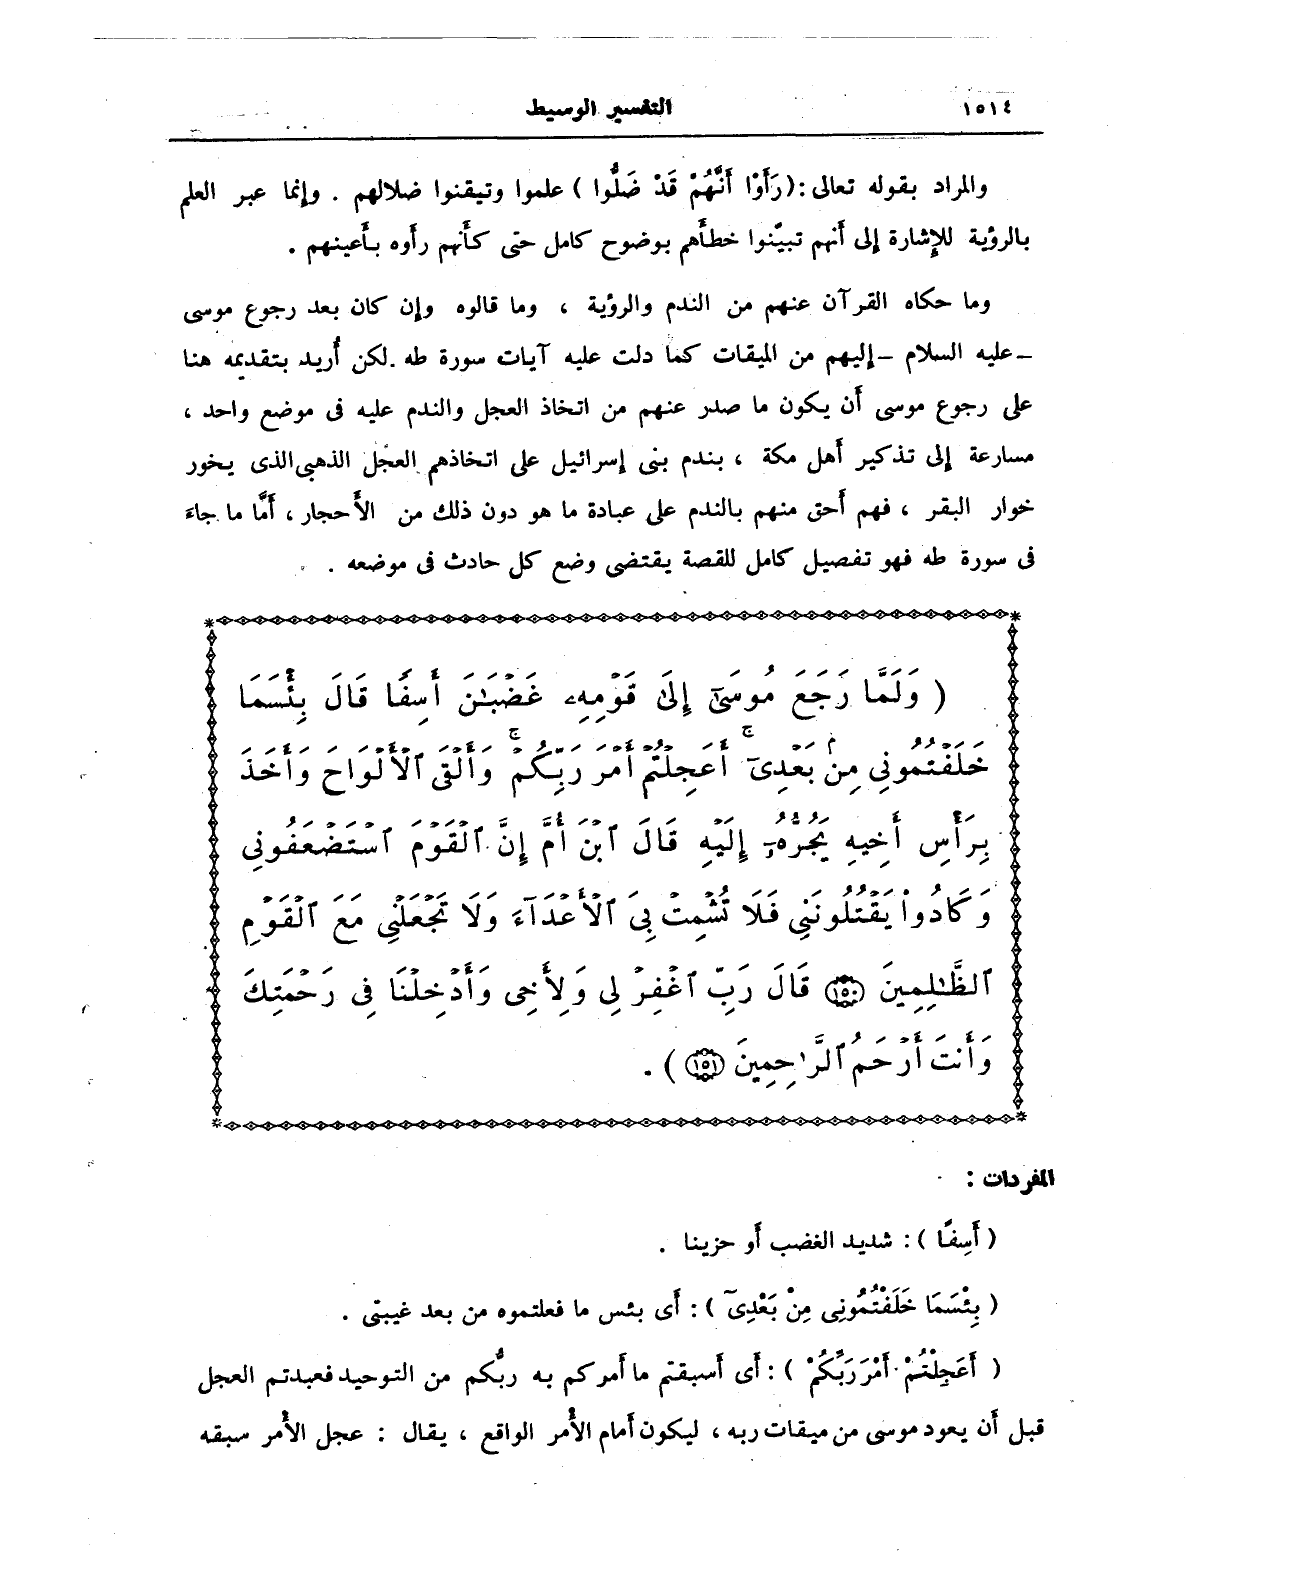 ١٥١٤
التفسير الوسيط
والمراد بقوله تعالى :( رَأَوْا أَنَّهُمْ قَدْ ضَلُّوا ) علموا وتيقنوا ضلالهم . وإنما عبر العلم
بالرؤية للإشارة إلى أنهم تبيَّنوا خطأهم بوضوح كامل حتى كأنهم رأوه بأعينهم .
وما حكاه القرآن عنهم من الندم والرؤية ، وما قالوه وإن كان بعد رجوع موسى
– عليه السلام – إليهم من الميقات كما دلت عليه آيات سورة طه . لكن أُريد بتقديمه هنا
على رجوع موسى أن يكون ما صدر عنهم من اتخاذ العجل والندم عليه فى موضع واحد ،
مسارعة إلى تذكير أهل مكة ، بندم بنى إسرائيل على اتخاذهم العجْل الذهبى الذى يخور
خوار البقر ، فهم أحق منهم بالندم على عبادة ما هو دون ذلك من الأحجار ، أمَّا ما جاءَ
فى سورة طه فهو تفصيل كامل للقصة يقتضى وضع كل حادث فى موضعه .
( وَلَمَّا رَجَعَ مُوسَىٰٓ إِلَىٰ قَوْمِهِۦ غَضْبَـٰنَ أَسِفًا قَالَ بِئْسَمَا
خَلَفْتُمُونِى مِنۢ بَعْدِىٓ ۚ أَعَجِلْتُمْ أَمْرَ رَبِّكُمْ ۚ وَأَلْقَى ٱلْأَلْوَاحَ وَأَخَذَ
بِرَأْسِ أَخِيهِ يَجُرُّهُۥٓ إِلَيْهِ قَالَ ٱبْنَ أُمَّ إِنَّ ٱلْقَوْمَ ٱسْتَضْعَفُونِى
وَكَادُوا۟ يَقْتُلُونَنِى فَلَا تُشْمِتْ بِىَ ٱلْأَعْدَآءَ وَلَا تَجْعَلْنِى مَعَ ٱلْقَوْمِ
ٱلظَّـٰلِمِينَ ﴿١٥٠﴾ قَالَ رَبِّ ٱغْفِرْ لِى وَلِأَخِى وَأَدْخِلْنَا فِى رَحْمَتِكَ
وَأَنتَ أَرْحَمُ ٱلرَّٰحِمِينَ ﴿١٥١﴾ ) .
المفردات :
( أَسِفًا ) : شديد الغضب أو حزينا .
( بِئْسَمَا خَلَفْتُمُونِى مِنْ بَعْدِىٓ ) : أى بئس ما فعلتموه من بعد غيبتى .
( أَعَجِلْتُمْ أَمْرَ رَبِّكُمْ ) : أى أسبقتم ما أمركم به ربُّكم من التوحيد فعبدتم العجل
قبل أن يعود موسى من ميقات ربه ، ليكون أمام الأمر الواقع ، يقال : عجل الأمر سبقه